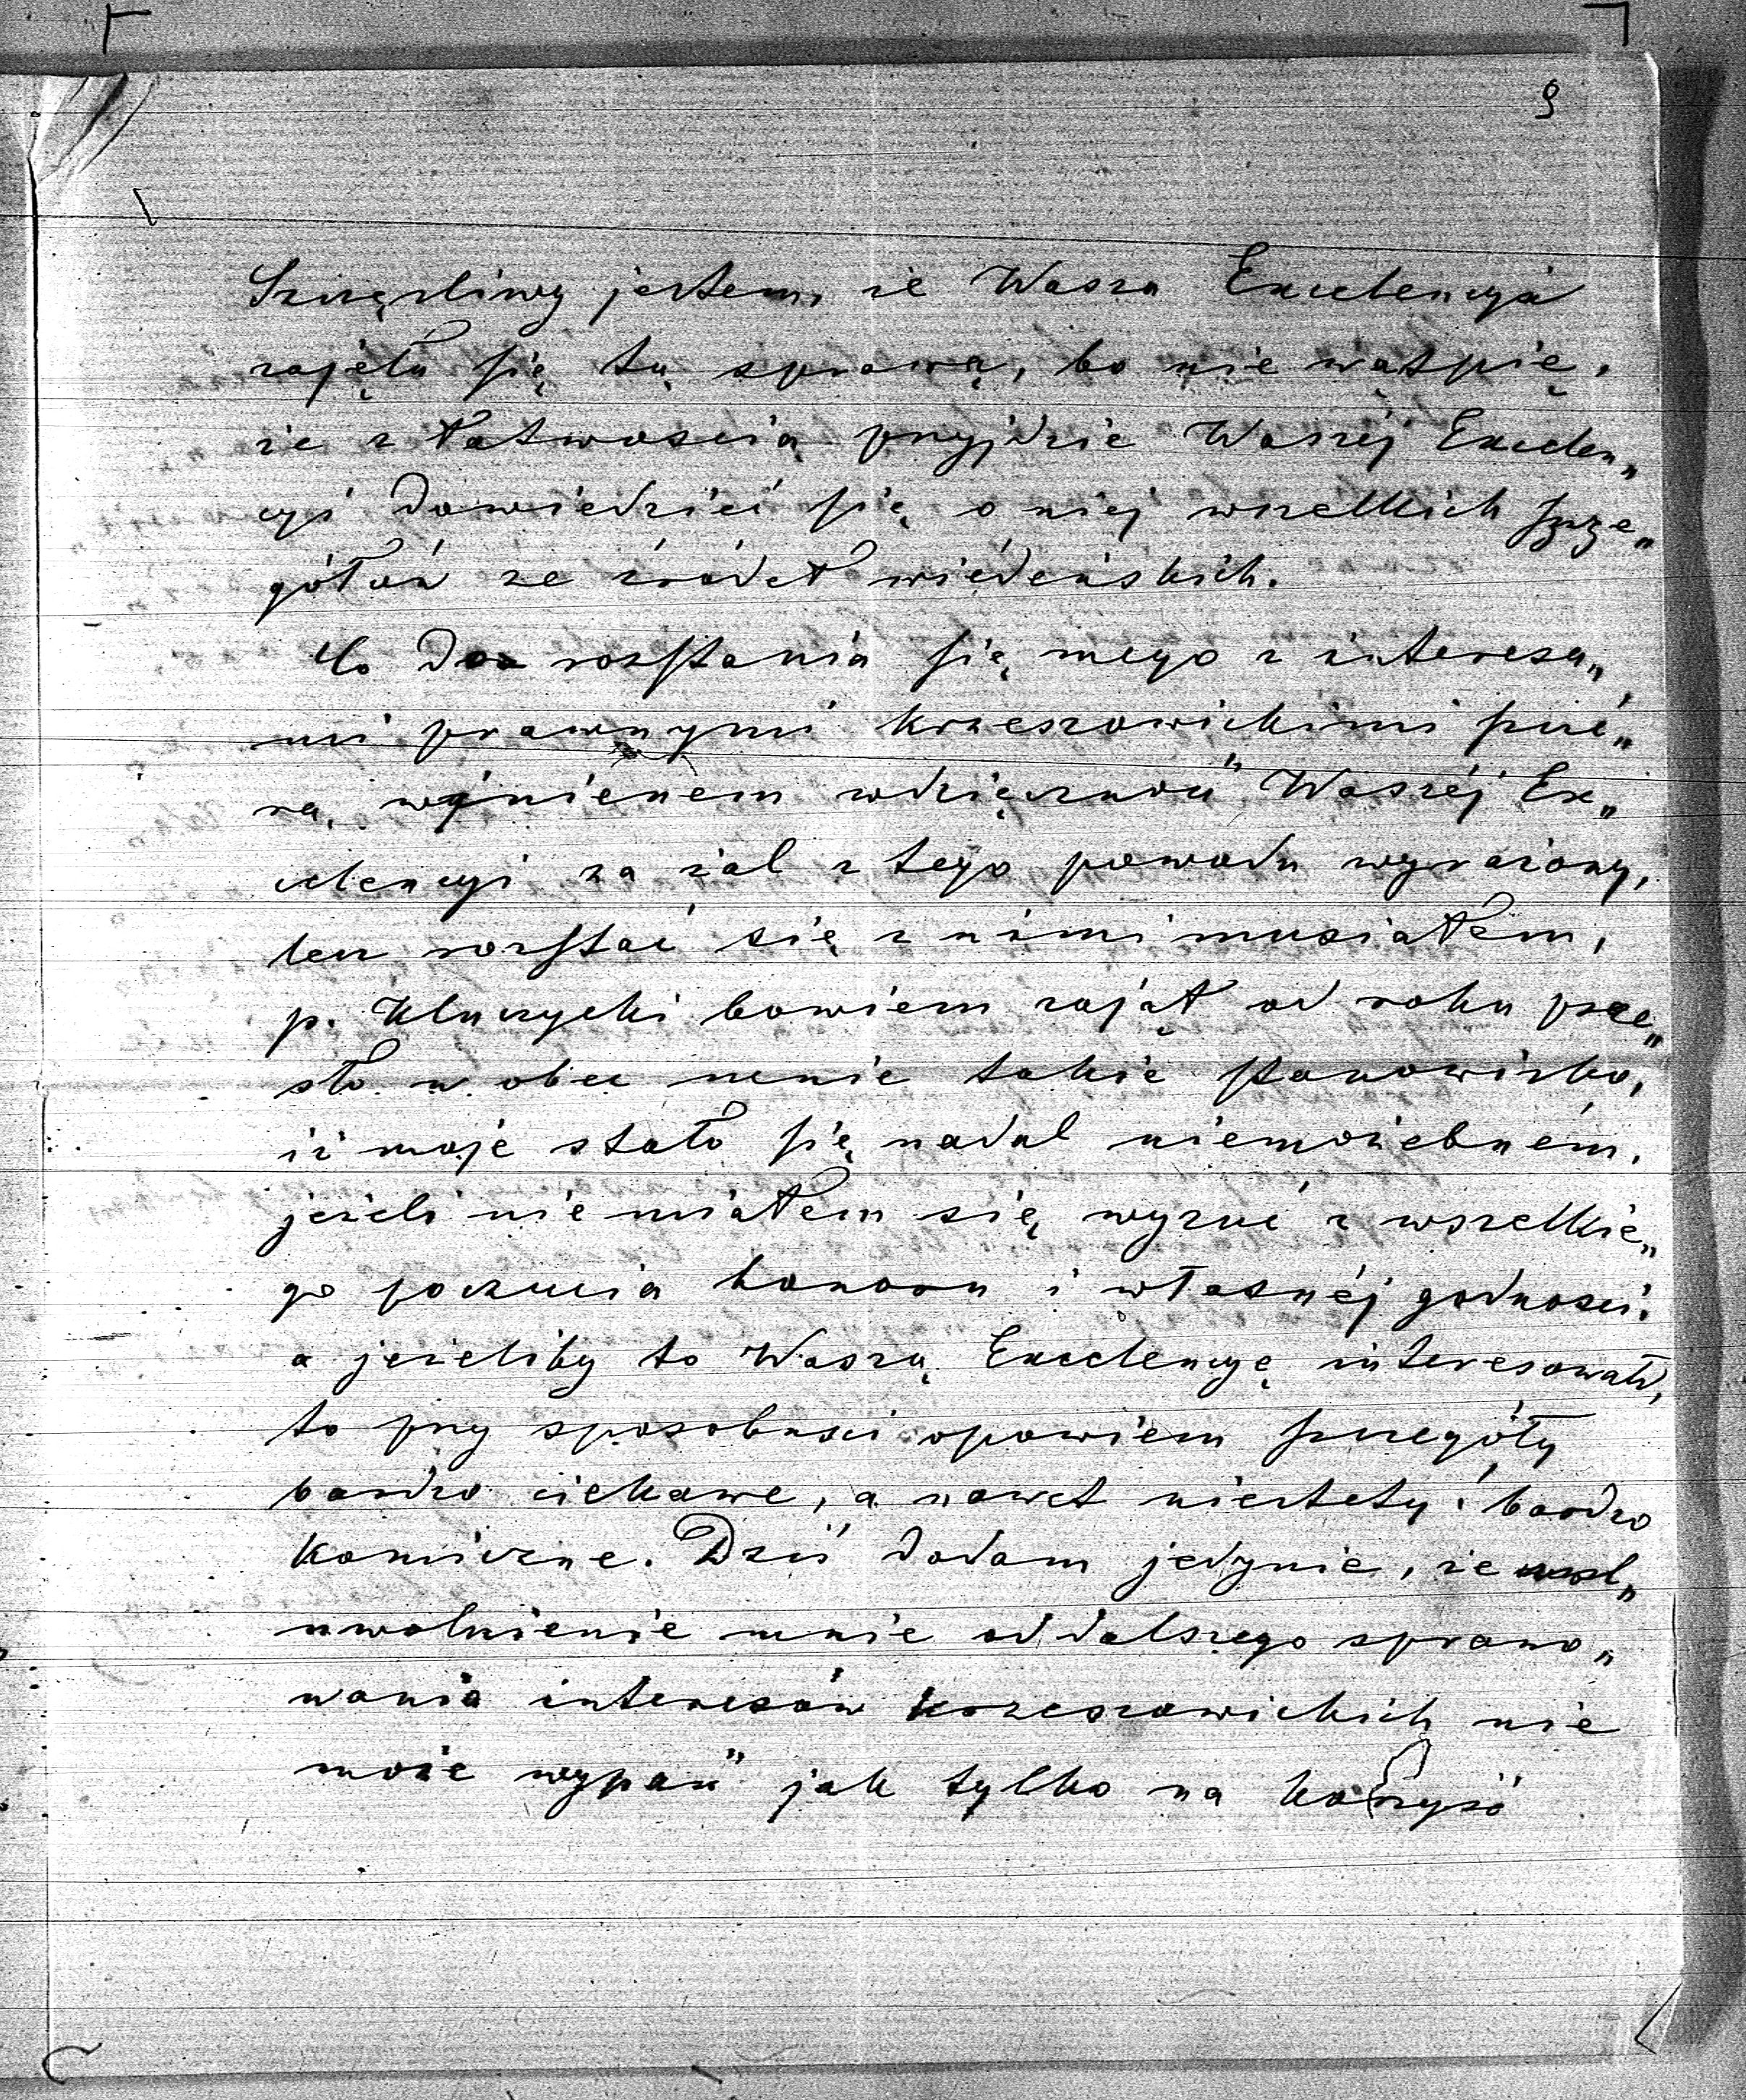 9
Szczęśliwy jestem, że Wasza Excelencyja
zajęła się tą sprawą, bo nie wątpię,
że z łatwością przyjdzie Waszéj Excelen„
cyi dowiedzieć się o niéj wszelkich szcze„
gółów ze źródeł wiedeńskich.
Co do rozstania się mego z interesa„
mi prawnymi krzeszowickimi
wdzięczność Waszéj Ex„
celencyi za żal z tego powodu wyrażony,
lecz rozstać się z nimi musiałem,
p. Kluczycki bowiem zajął od roku prze„
sło w obec mnie takie stanowisko,
iż moje stało się nadal niemożebném,
jeżeli nie miałem się wyzuć z wszelkie„
go poczucia honoru i własnéj godności.
a jeżeliby to Waszą Excelencyę interesowało,
to przy sposobności opowiem szczegóły
bardzo ciekawe, a nawet niestety! bardzo
komiczne. Dziś dodam jedynie, że
uwolnienie mnie od dalszego sprawo„
wania interesów krzeszowickich nie
może wypaść jak tylko na korzyść